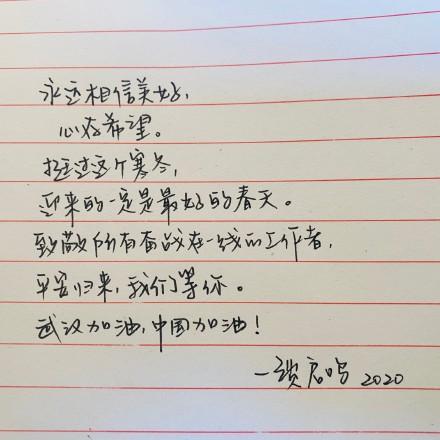 永远相信美好,
心存希望。
挺过这个寒冬,
迎来的一定是最好的春天。
致敬所有奋战在一线的工作者,
平安归来,我们等你。
武汉加油,中国加油!
2020